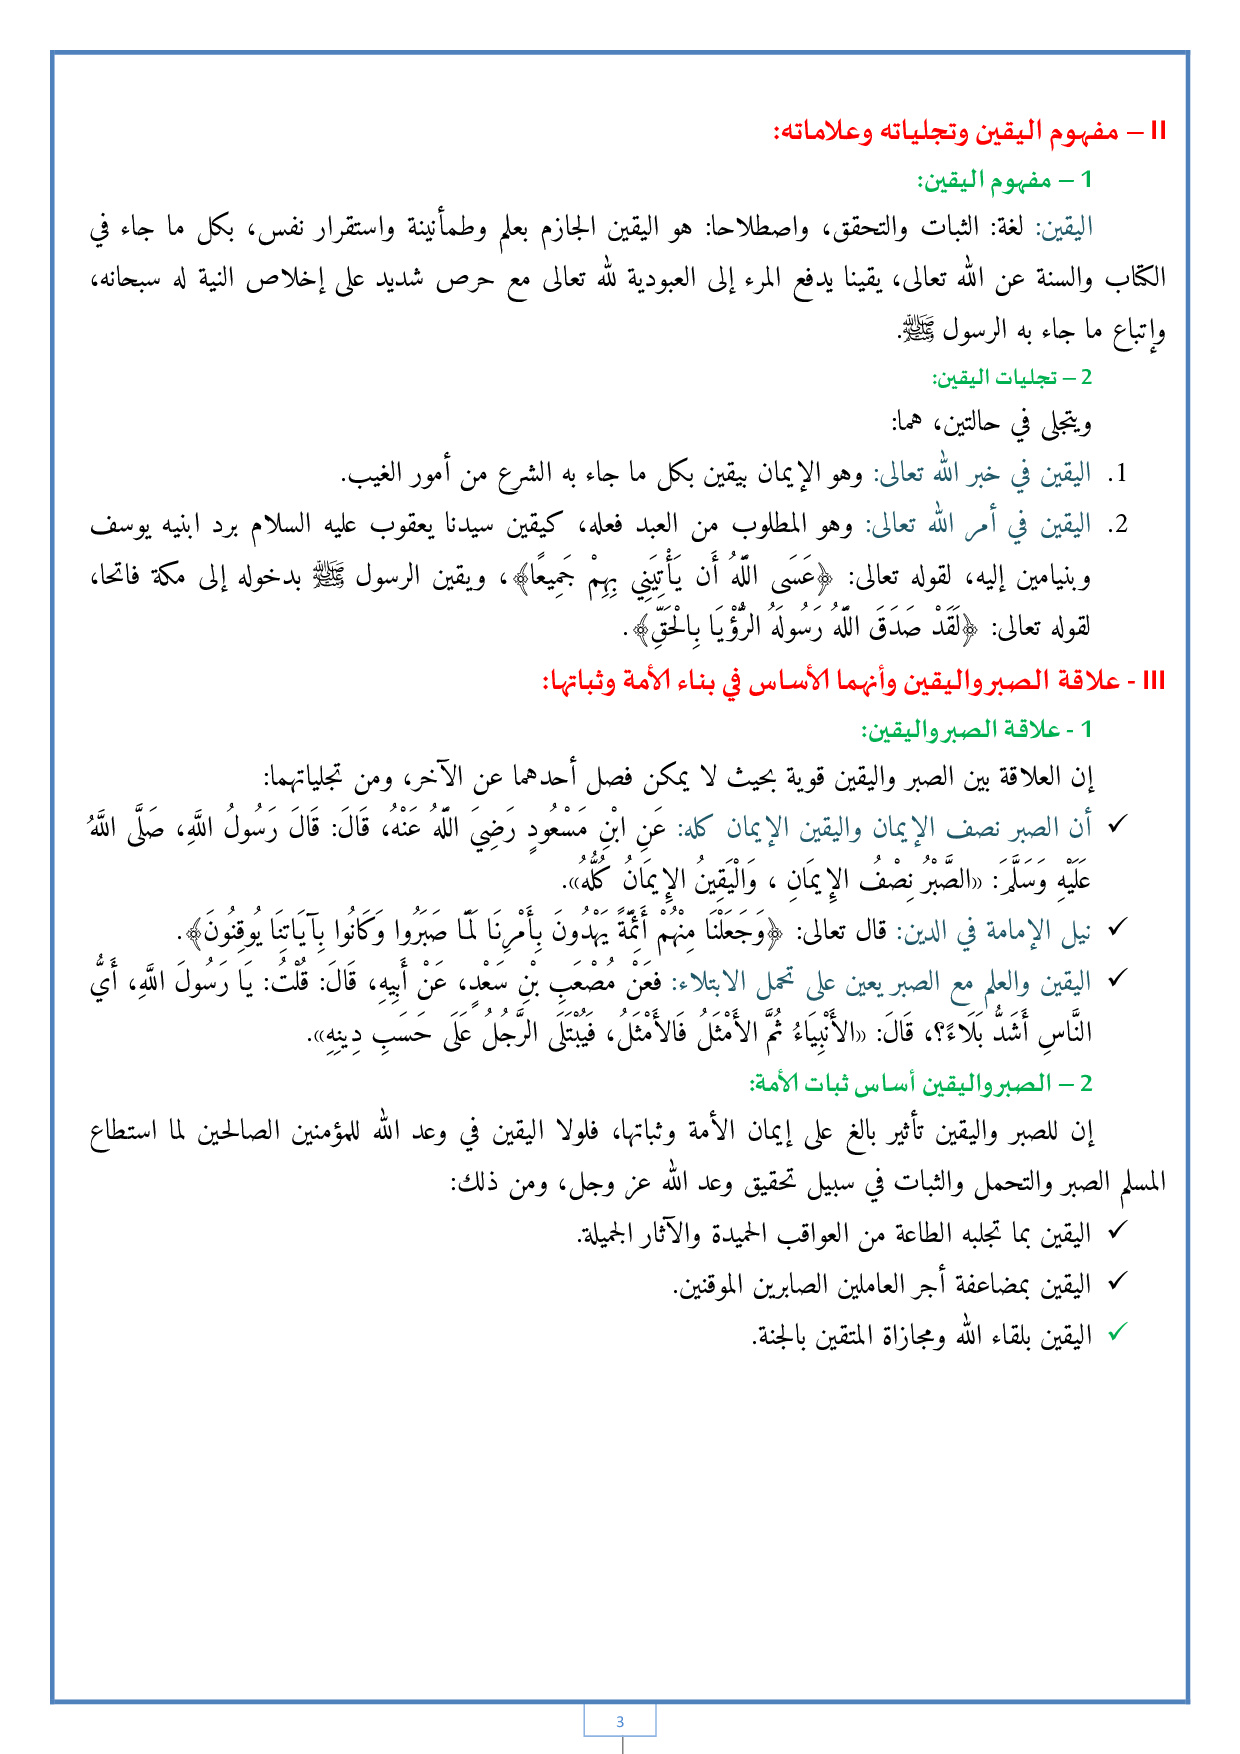 II – مفهوم اليقين وتجلياته وعلاماته:
1 – مفهوم اليقين:
اليقين: لغة: الثبات والتحقق، واصطلاحا: هو اليقين الجازم بعلم وطمأنينة واستقرار نفس، بكل ما جاء في
الكتاب والسنة عن الله تعالى، يقينا يدفع المرء إلى العبودية لله تعالى مع حرص شديد على إخلاص النية له سبحانه،
وإتباع ما جاء به الرسول ﷺ.
2 – تجليات اليقين:
ويتجلى في حالتين، هما:
1. اليقين في خبر الله تعالى: وهو الإيمان بيقين بكل ما جاء به الشرع من أمور الغيب.
2. اليقين في أمر الله تعالى: وهو المطلوب من العبد فعله، كيقين سيدنا يعقوب عليه السلام برد ابنيه يوسف
وبنيامين إليه، لقوله تعالى: ﴿عَسَى اللَّهُ أَن يَأْتِيَنِي بِهِمْ جَمِيعًا﴾، ويقين الرسول ﷺ بدخوله إلى مكة فاتحا،
لقوله تعالى: ﴿لَقَدْ صَدَقَ اللَّهُ رَسُولَهُ الرُّؤْيَا بِالْحَقِّ﴾.
III - علاقة الصبر واليقين وأنهما الأساس في بناء الأمة وثباتها:
1 - علاقة الصبر واليقين:
إن العلاقة بين الصبر واليقين قوية بحيث لا يمكن فصل أحدهما عن الآخر، ومن تجلياتهما:
✓ أن الصبر نصف الإيمان واليقين الإيمان كله: عَنِ ابْنِ مَسْعُودٍ رَضِيَ اللَّهُ عَنْهُ، قَالَ: قَالَ رَسُولُ اللَّهِ، صَلَّى اللَّهُ
عَلَيْهِ وَسَلَّمَ: «الصَّبْرُ نِصْفُ الإِيمَانِ ، وَالْيَقِينُ الإِيمَانُ كُلُّهُ».
✓ نيل الإمامة في الدين: قال تعالى: ﴿وَجَعَلْنَا مِنْهُمْ أَئِمَّةً يَهْدُونَ بِأَمْرِنَا لَمَّا صَبَرُوا وَكَانُوا بِآيَاتِنَا يُوقِنُونَ﴾.
✓ اليقين والعلم مع الصبر يعين على تحمل الابتلاء: فعَنْ مُصْعَبِ بْنِ سَعْدٍ، عَنْ أَبِيهِ، قَالَ: قُلْتُ: يَا رَسُولَ اللَّهِ، أَيُّ
النَّاسِ أَشَدُّ بَلَاءً؟، قَالَ: «الأَنْبِيَاءُ ثُمَّ الأَمْثَلُ فَالأَمْثَلُ، فَيُبْتَلَى الرَّجُلُ عَلَى حَسَبِ دِينِهِ».
2 – الصبر واليقين أساس ثبات الأمة:
إن للصبر واليقين تأثير بالغ على إيمان الأمة وثباتها، فلولا اليقين في وعد الله للمؤمنين الصالحين لما استطاع
المسلم الصبر والتحمل والثبات في سبيل تحقيق وعد الله عز وجل، ومن ذلك:
✓ اليقين بما تجلبه الطاعة من العواقب الحميدة والآثار الجميلة.
✓ اليقين بمضاعفة أجر العاملين الصابرين الموقنين.
✓ اليقين بلقاء الله ومجازاة المتقين بالجنة.
3